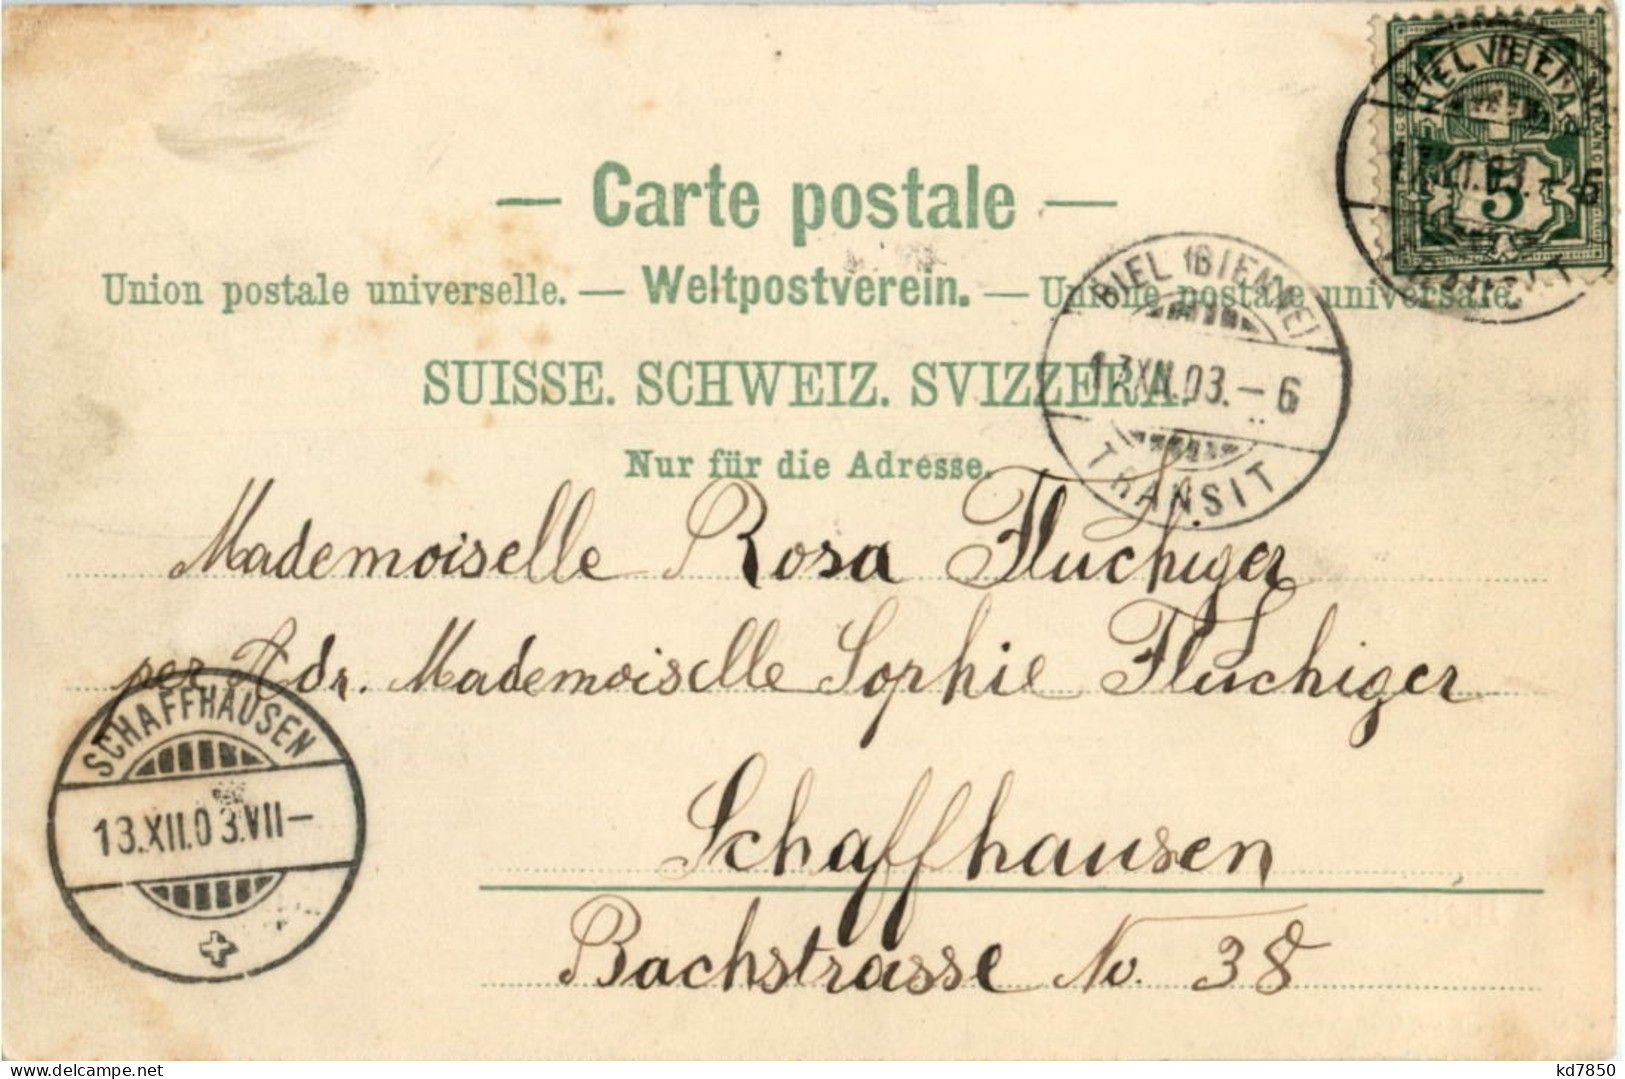 HELVETIA
5
— Carte postale —
Union postale universelle. — Weltpostverein. — Unione postale universale.
BIEL (BIENNE)
13.XII.03.–6
TRANSIT
SUISSE. SCHWEIZ. SVIZZERA.
Nur für die Adresse.
Mademoiselle Rosa Fluchiger
per Adr. Mademoiselle Sophie Fluchiger
SCHAFFHAUSEN
13.XII.03.VII–
Schaffhausen
Bachstrasse No. 38
kd7850